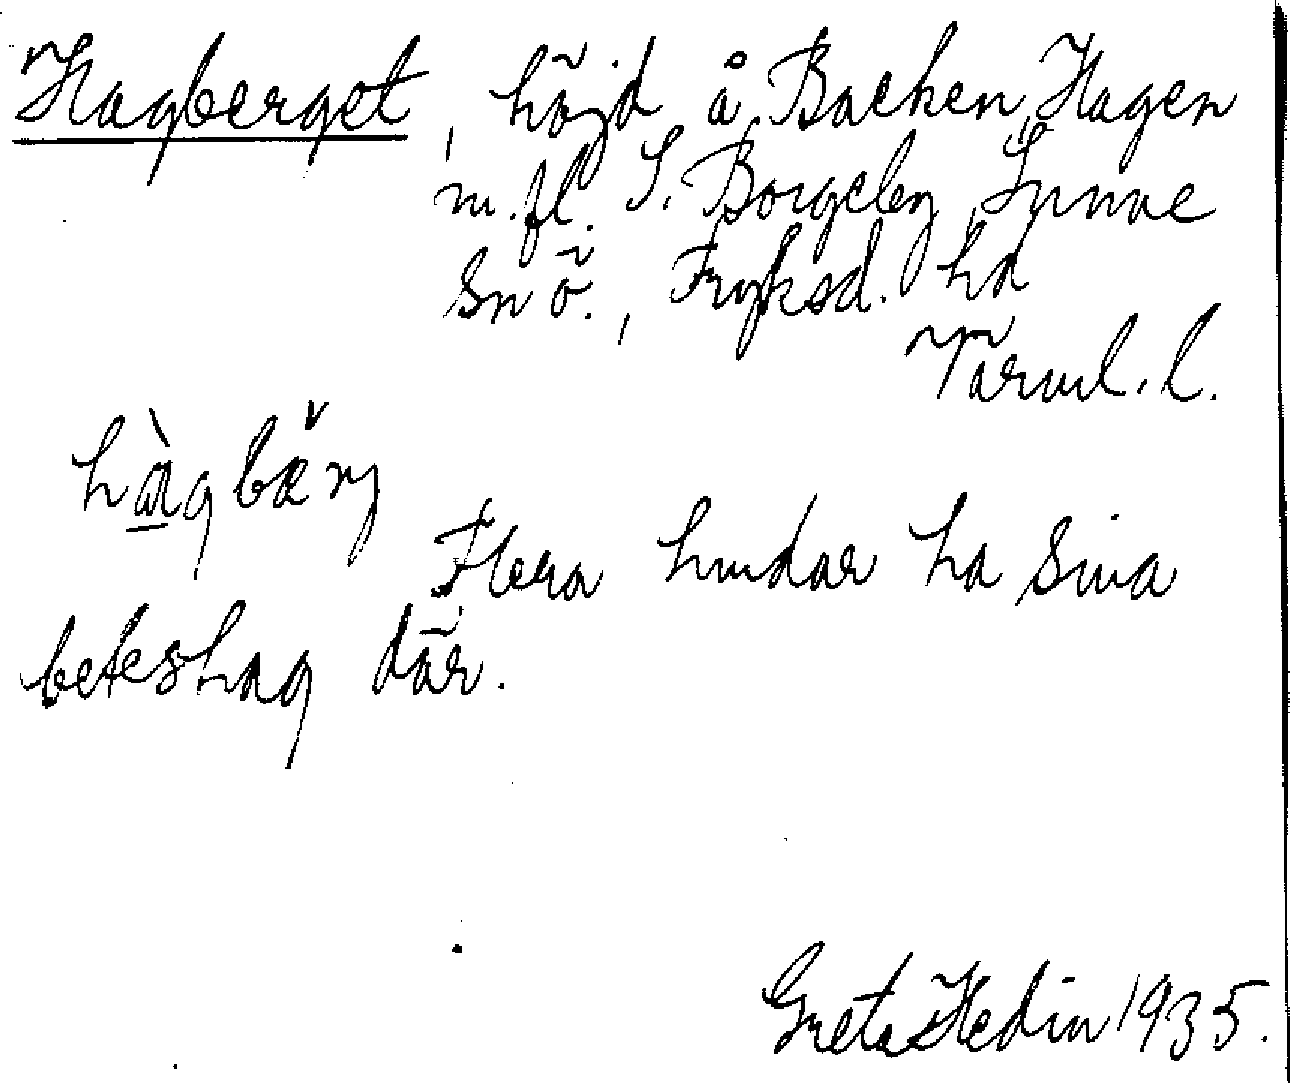 Hagberget, höjd å Backen, Hagen
m.fl. S. Borgeby, Sunne
sn ö., Fryksd. hd
Värml. l.
hàgbär̆j
Flera hundar ha sina
beteshag där.
Greta Hedin 1935.